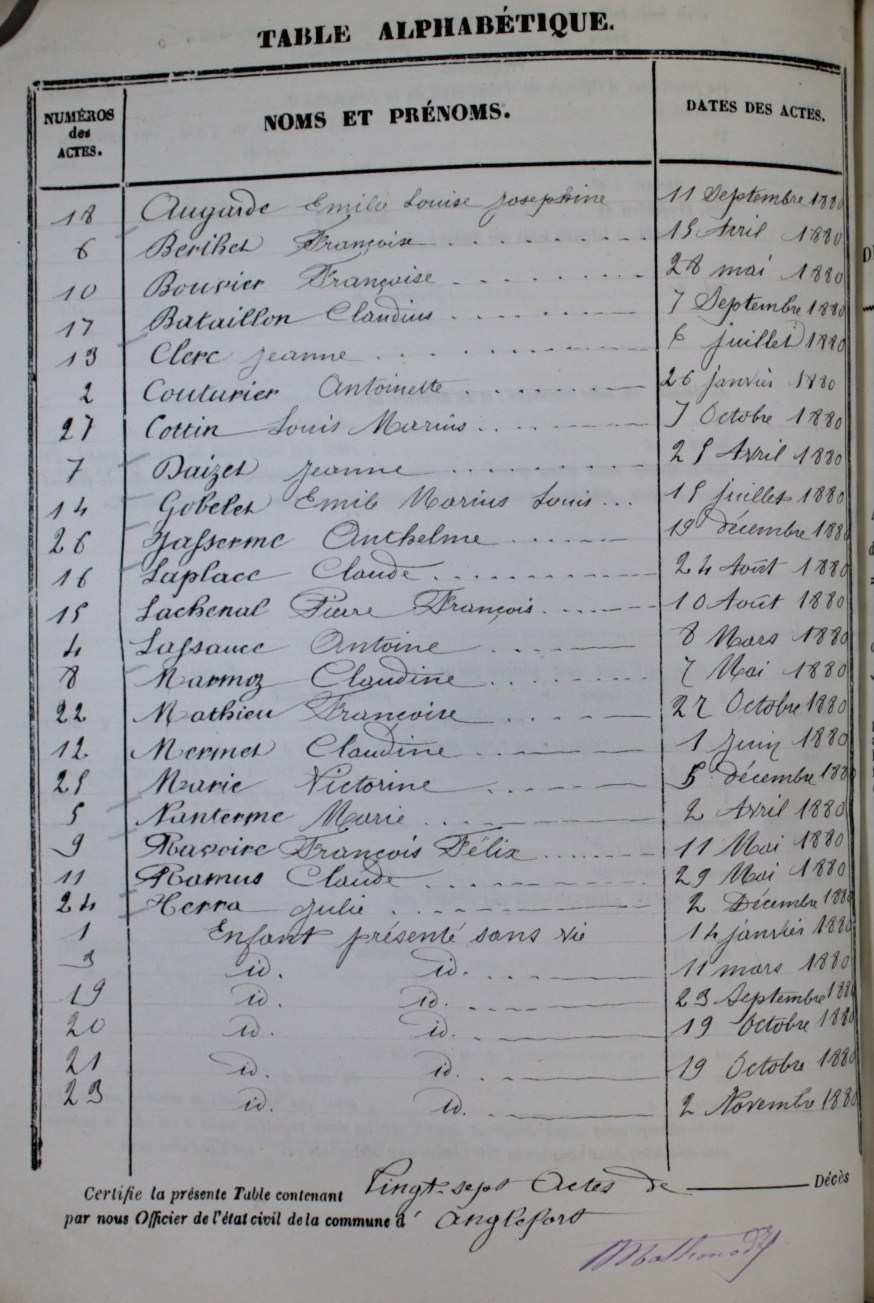 TABLE ALPHABÉTIQUE.
NUMÉROS des ACTES. NOMS ET PRÉNOMS. DATES DES ACTES.
18 Augarde Emile Louise Josephine 11 Septembre 1880
6 Berthet Françoise 15 Avril 1880
10 Bouvier Françoise 28 mai 1880
17 Bataillon Claudius 7 Septembre 1880
13 Clerc Jeanne 6 juillet 1880
2 Couturier Antoinette 26 janvier 1880
27 Cottin Louis Marius 7 Octobre 1880
7 Daizet Jeanne 25 Avril 1880
14 Gobelet Emile Marius Louis 15 juillet 1880
26 Jasserme Anthelme 19 décembre 1880
16 Laplace Claude 24 Août 1880
15 Lachenal Pierre François 10 Août 1880
4 Lassauce Antoine 8 Mars 1880
8 Marmoz Claudine 7 Mai 1880
22 Mathieu Françoise 27 Octobre 1880
12 Mermet Claudine 1 Juin 1880
25 Marie Victorine 5 décembre 1880
5 Nanterme Marie 2 Avril 1880
9 Ravoire François Félix 11 Mai 1880
11 Ramus Claude 29 Mai 1880
24 Julie 2 Décembre 1880
1 Enfant présenté sans vie 14 janvier 1880
3 id. id. 11 mars 1880
19 id. id. 23 Septembre 1880
20 id. id. 19 Octobre 1880
21 id. id. 19 Octobre 1880
23 id. id. 2 Novembre 1880
Certifie la présente Table contenant Vingt-sept Actes de Décès
par nous Officier de l'état civil de la commune d' Anglefort